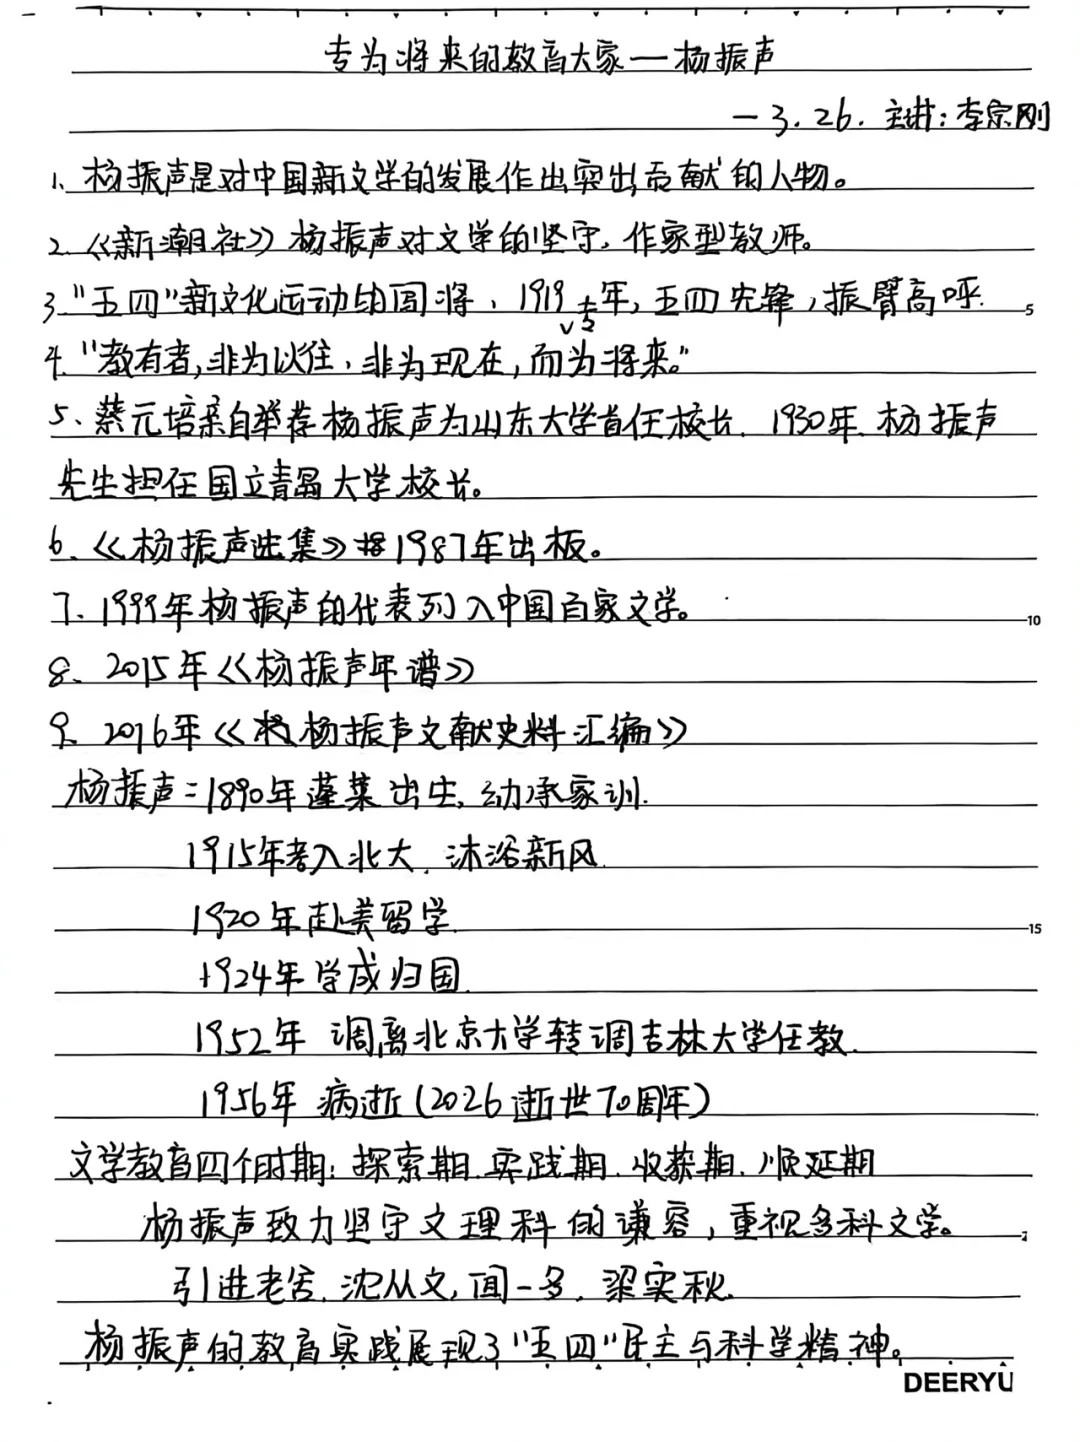 专为将来的教育大家—杨振声
—3.26. 主讲:李宗刚
1、杨振声是对中国新文学的发展作出突出贡献的人物。
2.《新潮社》杨振声对文学的坚守,作家型教师。
3."五四"新文化运动的闯将、1919年,五四先锋,振臂高呼.
5
4."教育者,非为以往,非为现在,而为将来。"
5、蔡元培亲自举荐杨振声为山东大学首任校长. 1930年.杨振声
先生担任国立青岛大学校长。
6、《杨振声选集》1987年出板。
7、1999年杨振声的代表列入中国百家文学。
10
8、2015年《杨振声年谱》
9、2016年《杨振声文献史料汇编》
杨振声:1890年蓬莱出生,幼承家训.
1915年考入北大,沐浴新风.
1920年赴美留学.
15
1924年学成归国.
1952年 调离北京大学转调吉林大学任教.
1956年 病逝(2026逝世70周年)
文学教育四个时期:探索期.实践期.收获期.顺延期
杨振声致力坚守文理科的兼容,重视多科文学。
引进老舍.沈从文,闻一多.梁实秋.
杨振声的教育实践展现了"五四"民主与科学精神。
DEERYU